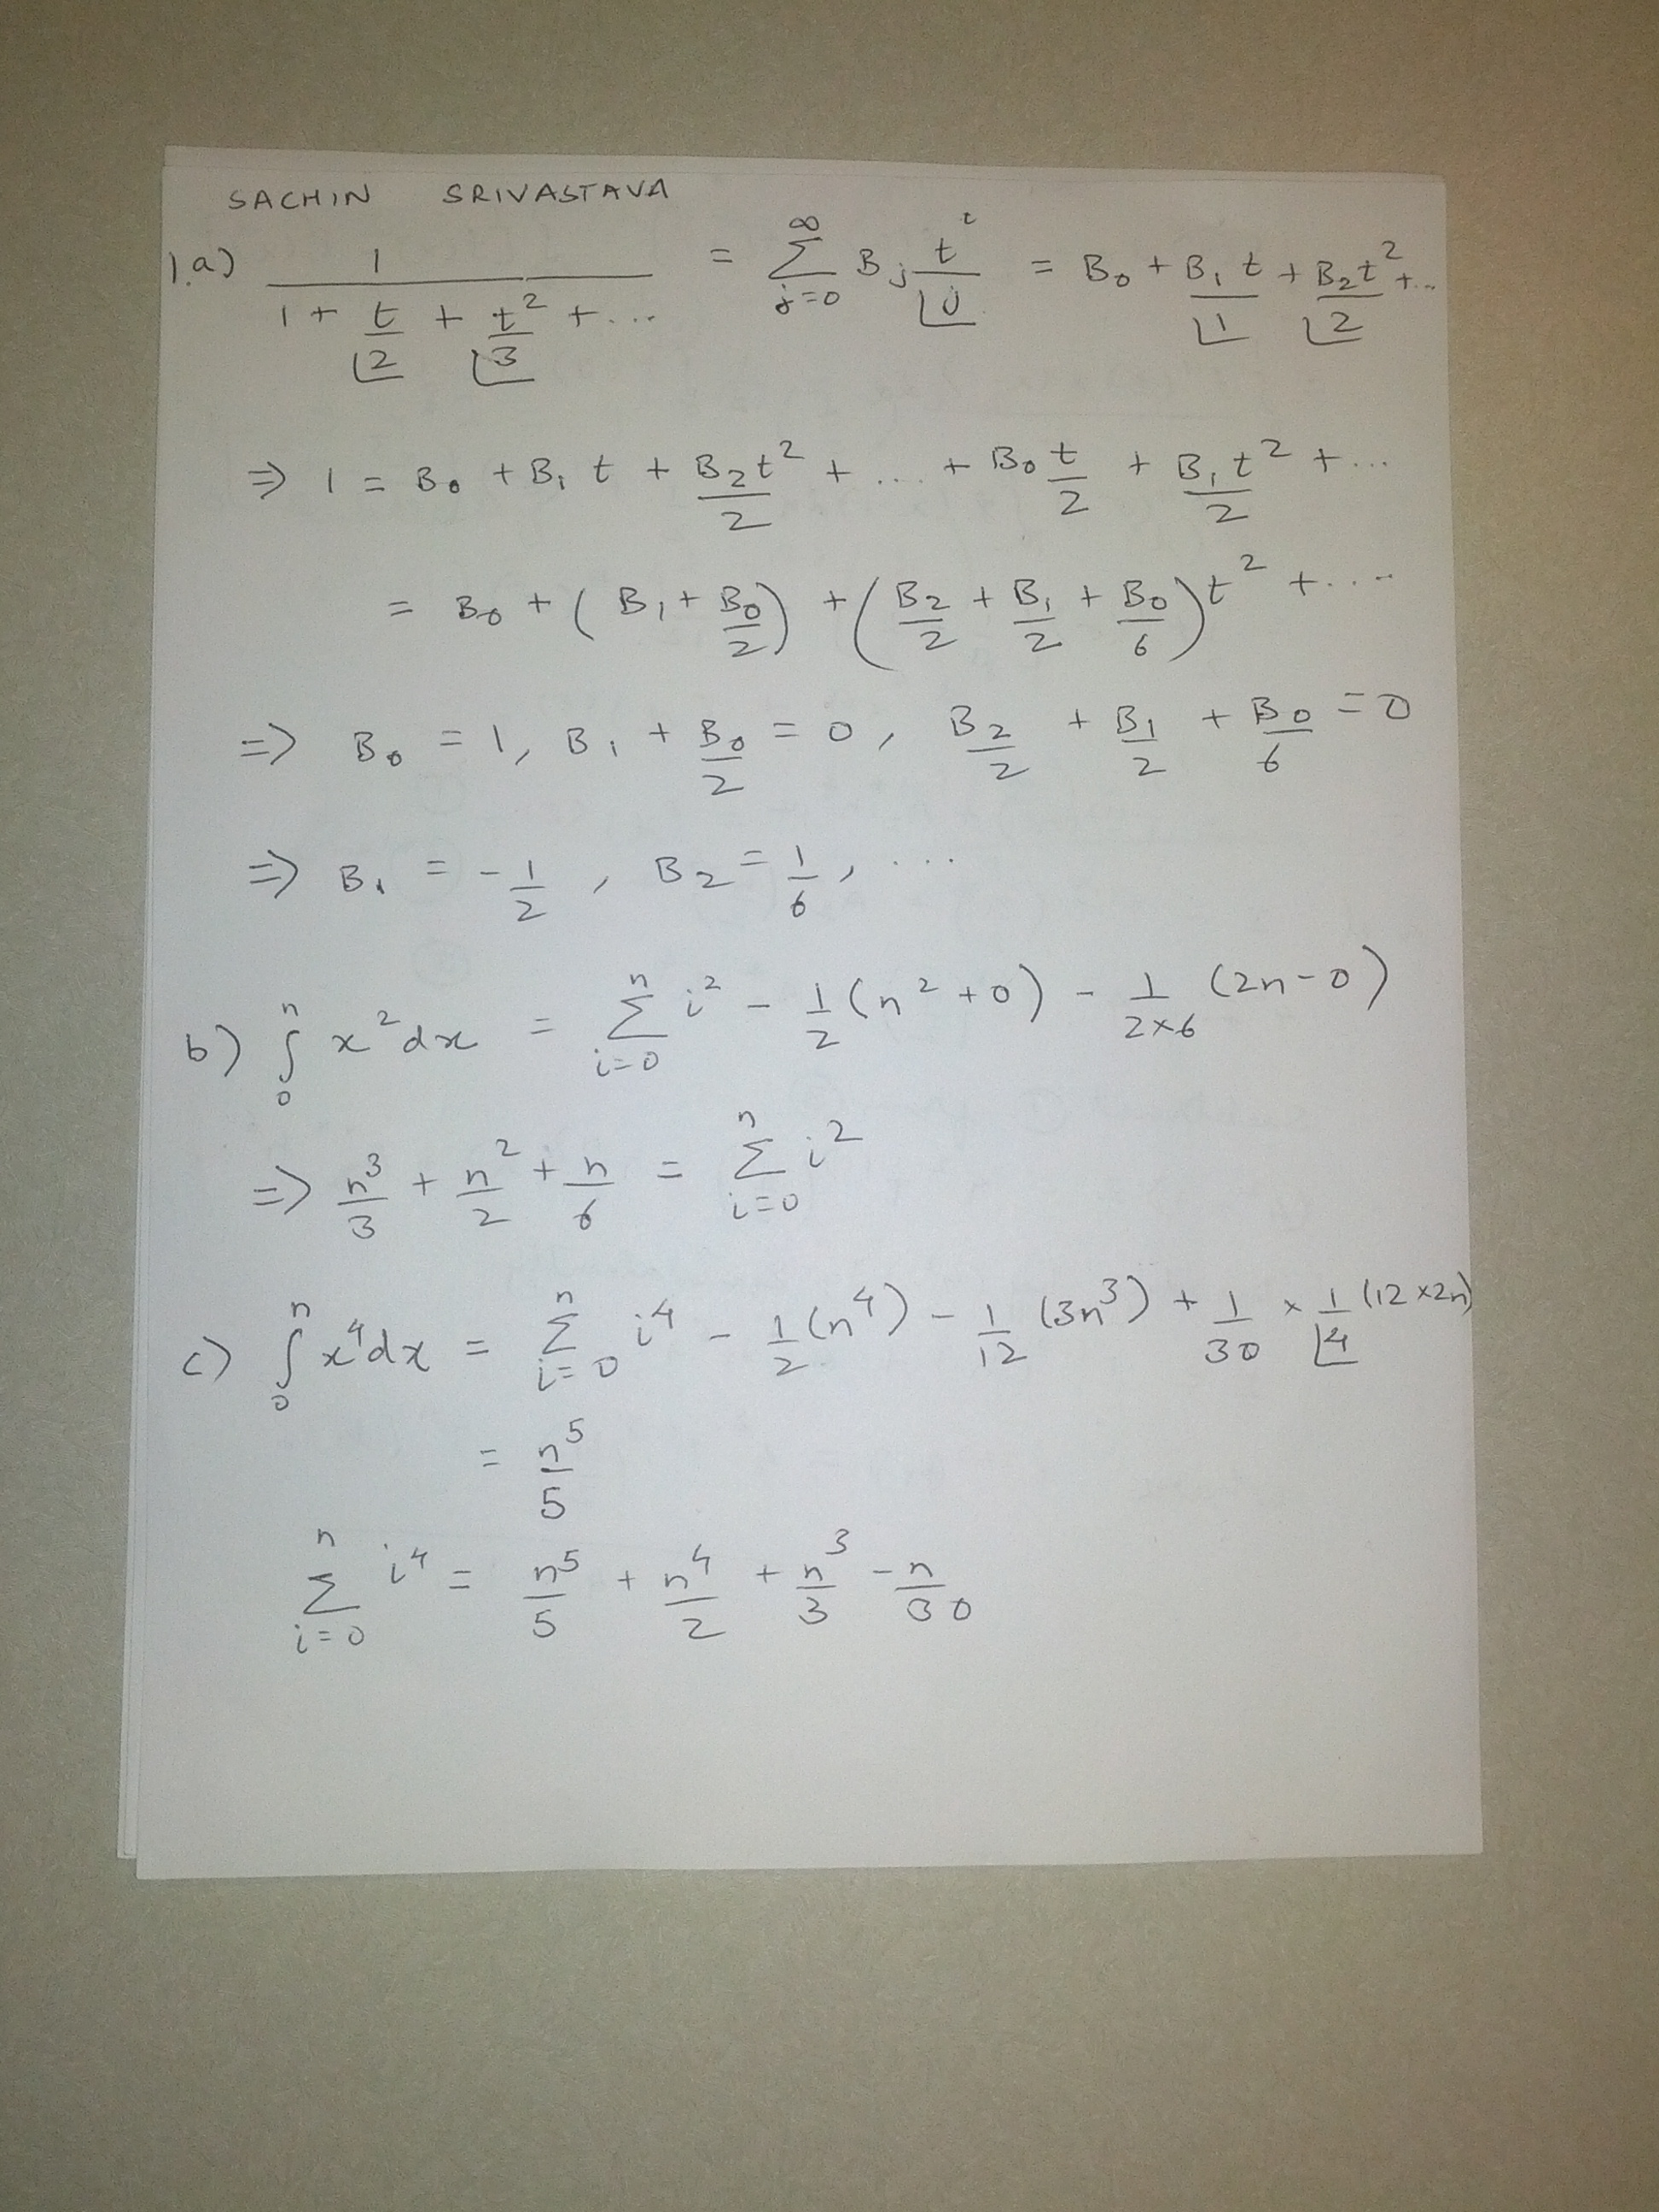 SACHIN SRIVASTAVA
1.a) 1/(1 + t/⌊2 + t²/⌊3 + ...) = ∞Σj=0 Bj tⁱ/⌊j = B₀ + B₁t/⌊1 + B₂t²/⌊2 + ...
⇒ 1 = B₀ + B₁ t + B₂t²/2 + ... + B₀ t/2 + B₁t²/2 + ...
= B₀ + (B₁ + B₀/2) + (B₂/2 + B₁/2 + B₀/6)t² + ...
⇒ B₀ = 1, B₁ + B₀/2 = 0, B₂/2 + B₁/2 + B₀/6 = 0
⇒ B₁ = -1/2, B₂ = 1/6, ...
b) ∫₀ⁿ x²dx = nΣi=0 i² - 1/2(n² + 0) - 1/(2×6) (2n-0)
⇒ n³/3 + n²/2 + n/6 = nΣi=0 i²
c) ∫₀ⁿ x⁴dx = nΣi=0 i⁴ - 1/2(n⁴) - 1/12(3n³) + 1/30 × 1/⌊4 (12×2n)
= n⁵/5
nΣi=0 i⁴ = n⁵/5 + n⁴/2 + n³/3 - n/30